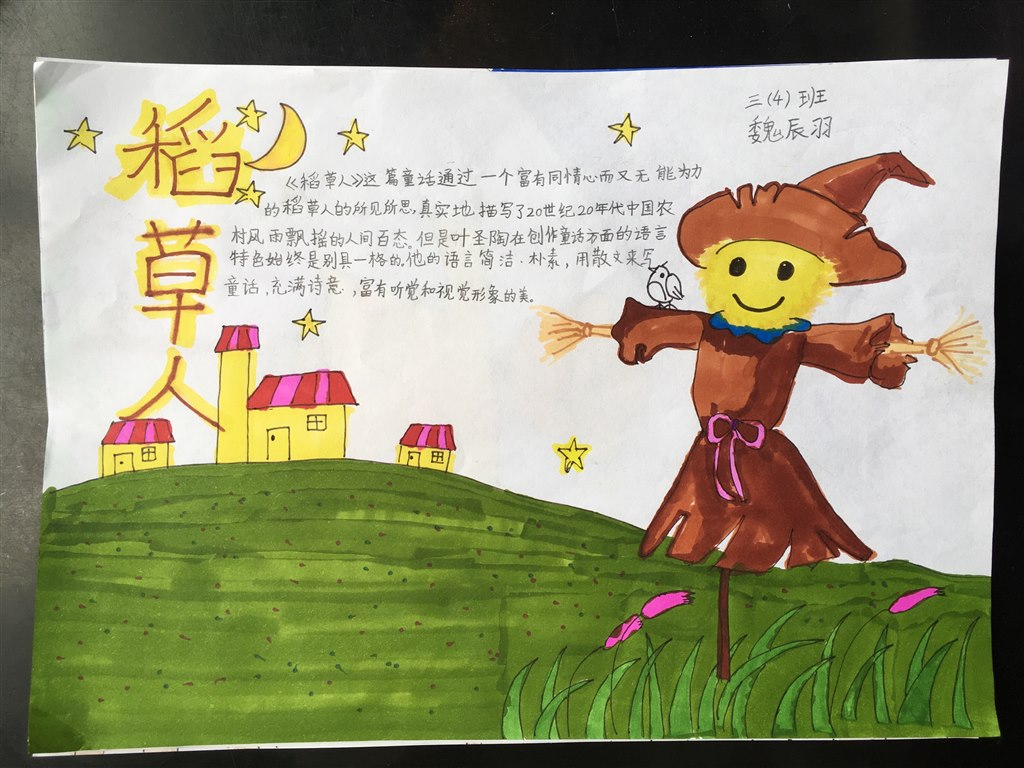 稻草人
三(4)班
魏辰羽
《稻草人》这篇童话通过一个富有同情心而又无能为力
的稻草人的所见所思,真实地描写了20世纪20年代中国农
村风雨飘摇的人间百态。但是叶圣陶在创作童话方面的语言
特色始终是别具一格的。他的语言简洁、朴素,用散文来写
童话,充满诗意,富有听觉和视觉形象的美。